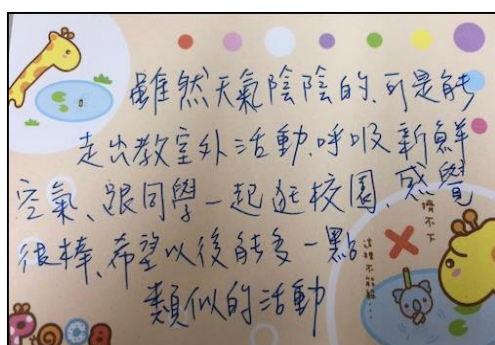 雖然天氣陰陰的、可是能
走出教室外活動、呼吸新鮮
空氣、跟同學一起逛校園、感覺
很棒、希望以後能多一點
類似的活動